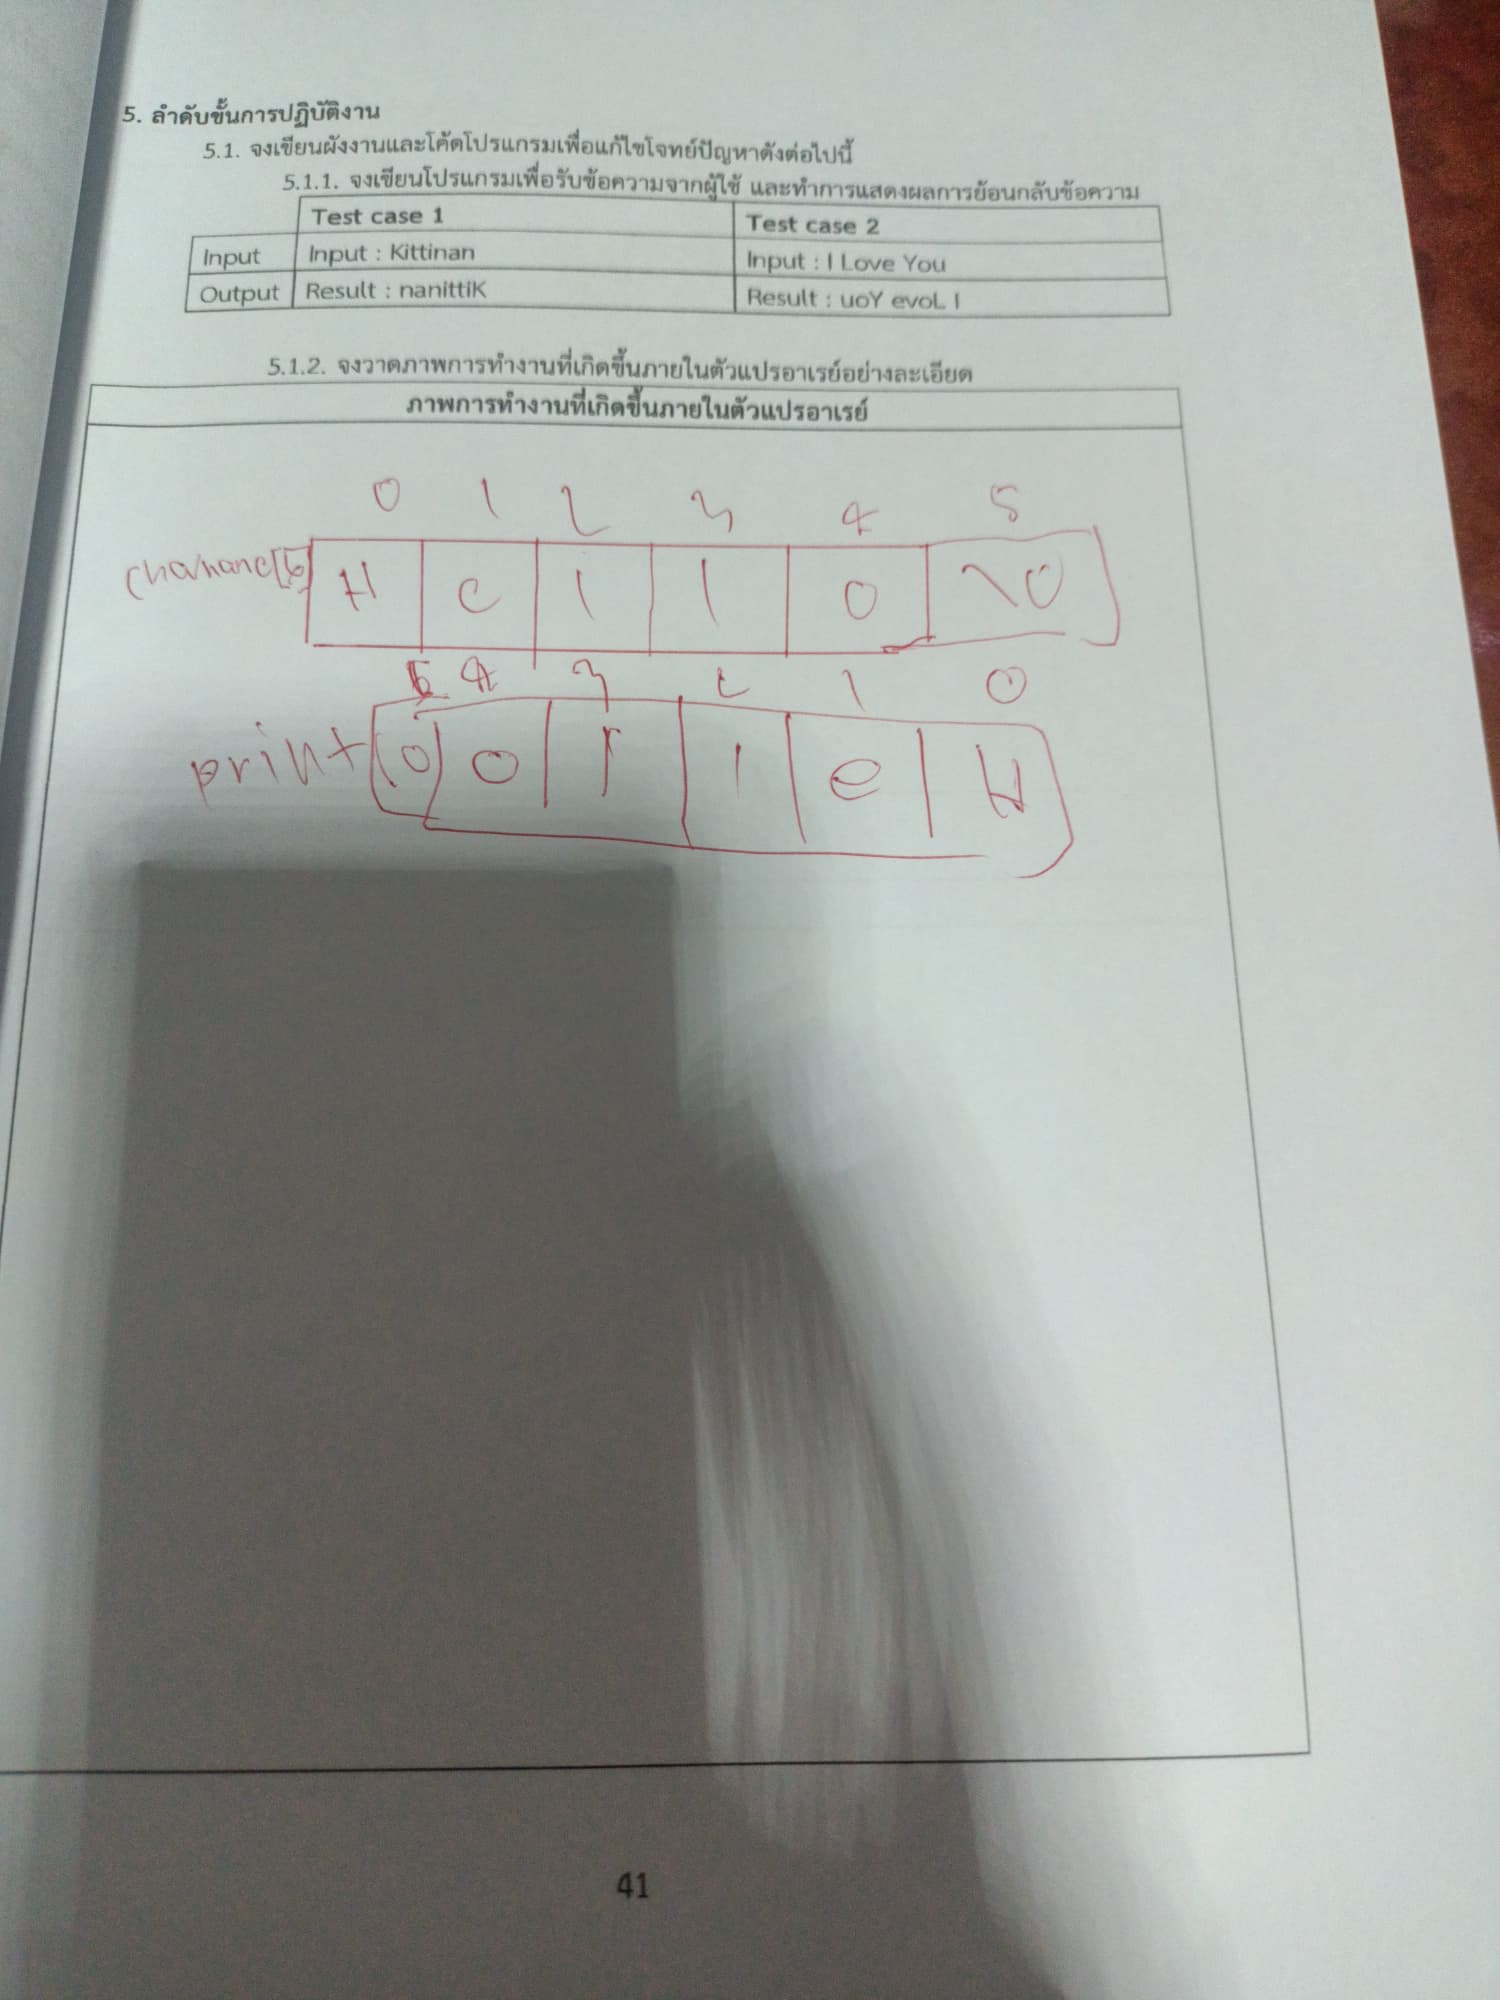 5. ลำดับขั้นการปฏิบัติงาน
5.1. จงเขียนผังงานและโค้ดโปรแกรมเพื่อแก้ไขโจทย์ปัญหาดังต่อไปนี้
5.1.1. จงเขียนโปรแกรมเพื่อรับข้อความจากผู้ใช้ และทำการแสดงผลการย้อนกลับข้อความ
Test case 1 Test case 2
Input Input : Kittinan Input : I Love You
Output Result : nanittiK Result : uoY evoL I
5.1.2. จงวาดภาพการทำงานที่เกิดขึ้นภายในตัวแปรอาเรย์อย่างละเอียด
ภาพการทำงานที่เกิดขึ้นภายในตัวแปรอาเรย์
0 1 2 3 4 5
H e l l o \0
4 3 2 1 0
print \0 o l l e H
41